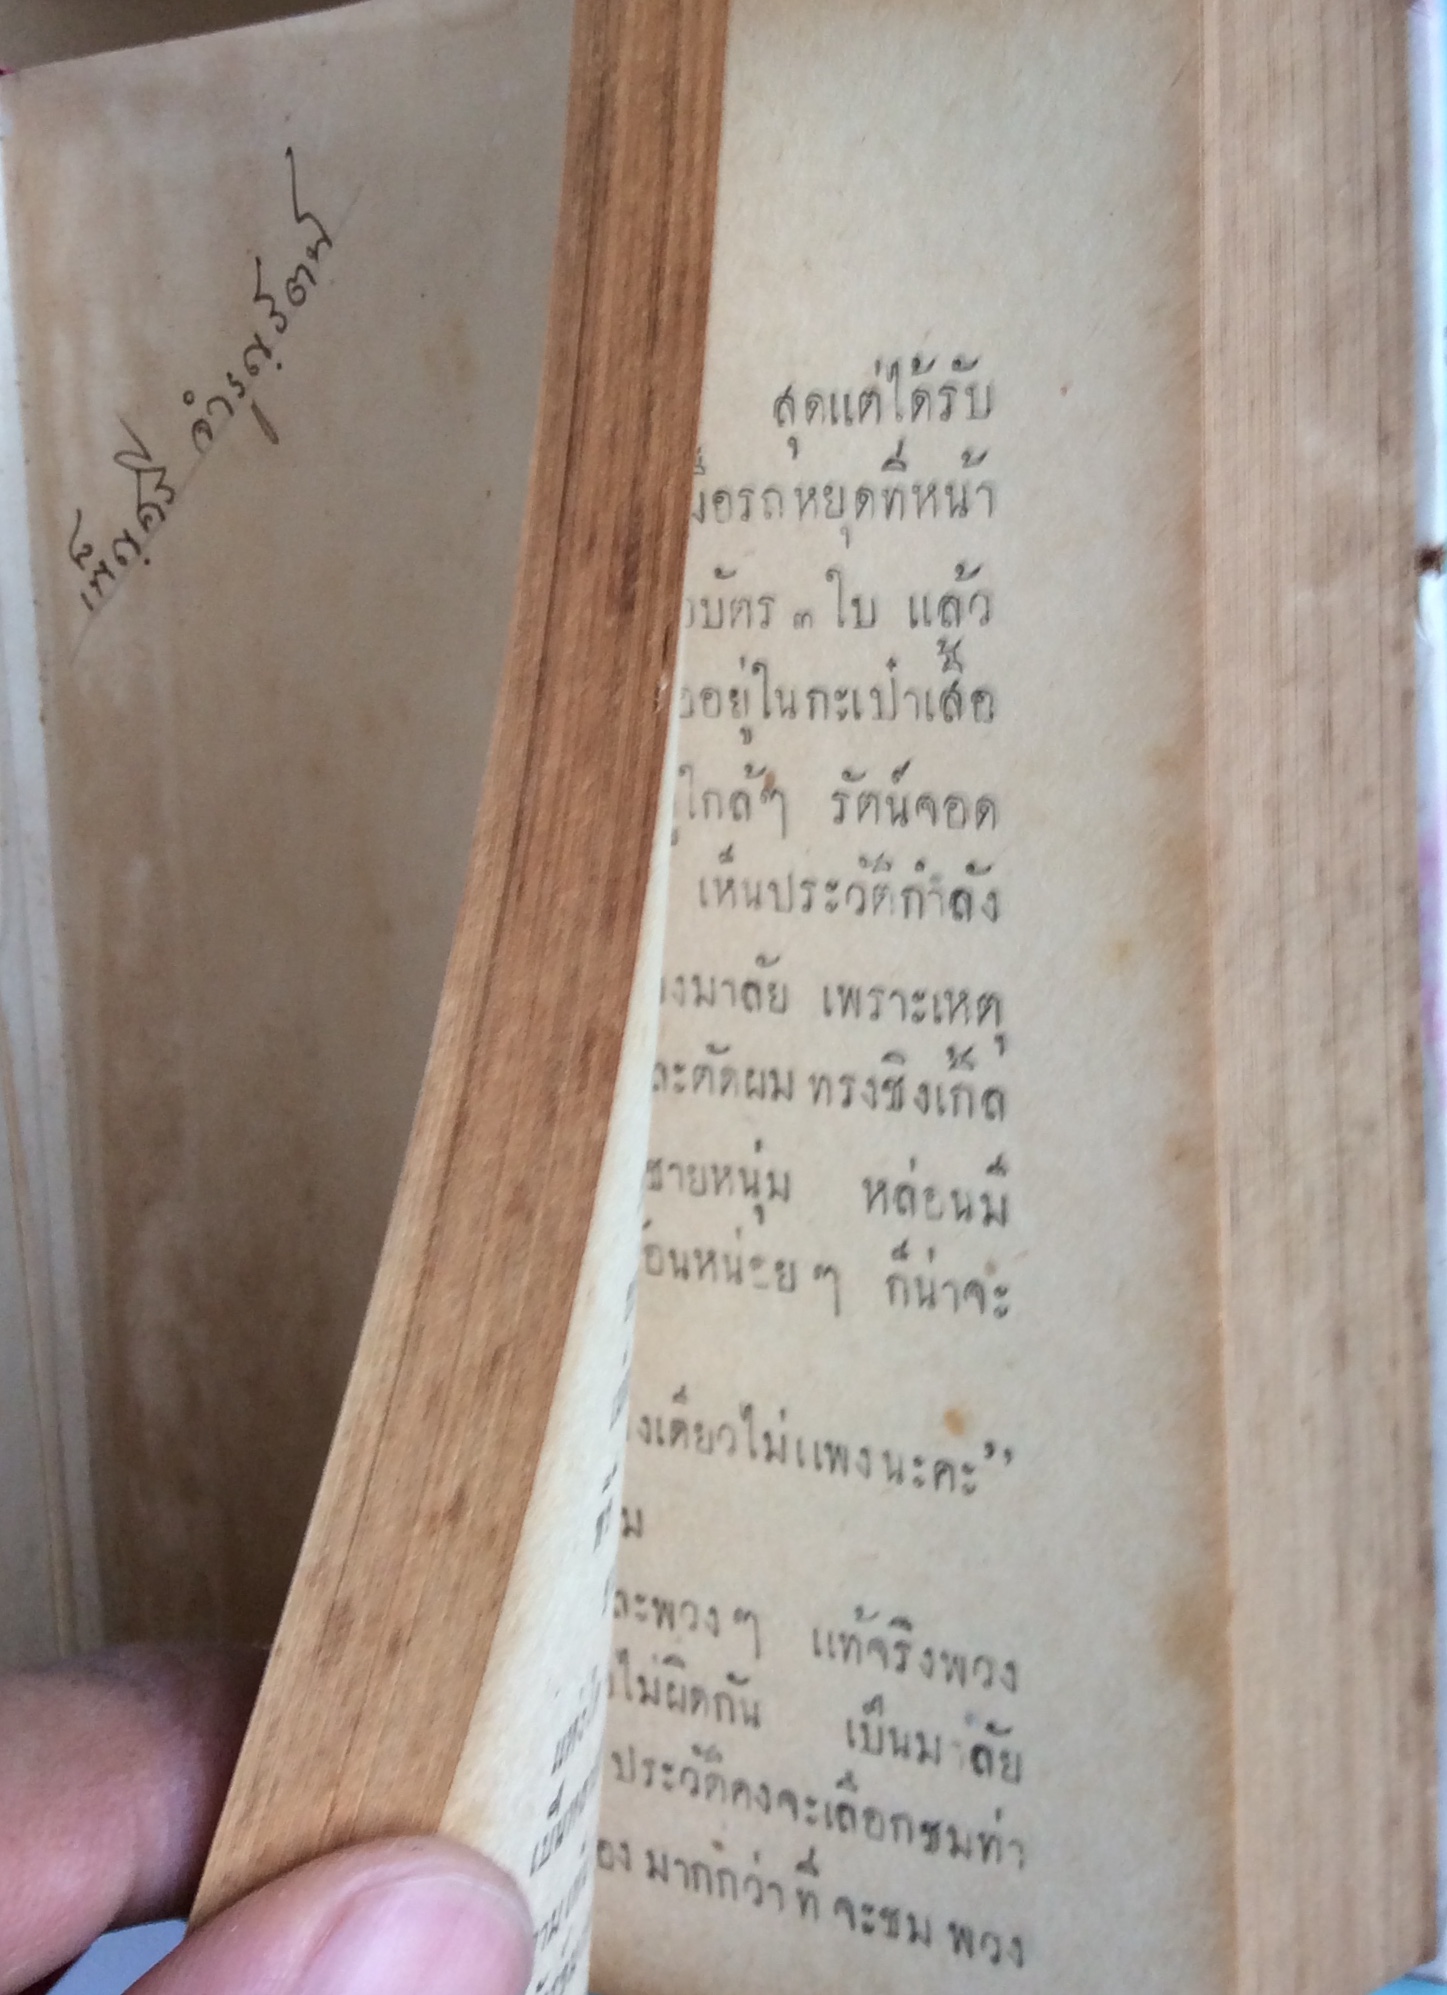 เพ็ญศรี จำรูญรัตน์
สุดแต่ได้รับ
รถหยุดที่หน้า
บัตร ๓ ใบ แล้ว
อยู่ในกะเป๋าเสื้อ
ใกล้ๆ รัตน์จอด
เห็นประวัติกำลัง
มาลัย เพราะเหตุ
ตัดผม ทรงซิงเกิ้ล
ชายหนุ่ม หล่อนมี
หน่อย ๆ ก็น่าจะ
เดียวไม่แพงนะคะ”
พวง ๆ แท้จริงพวง
ไม่ผิดกัน เป็นมาลัย
ประวัติคงจะเลือกชมท่า
มากกว่าที่ จะชม พวง